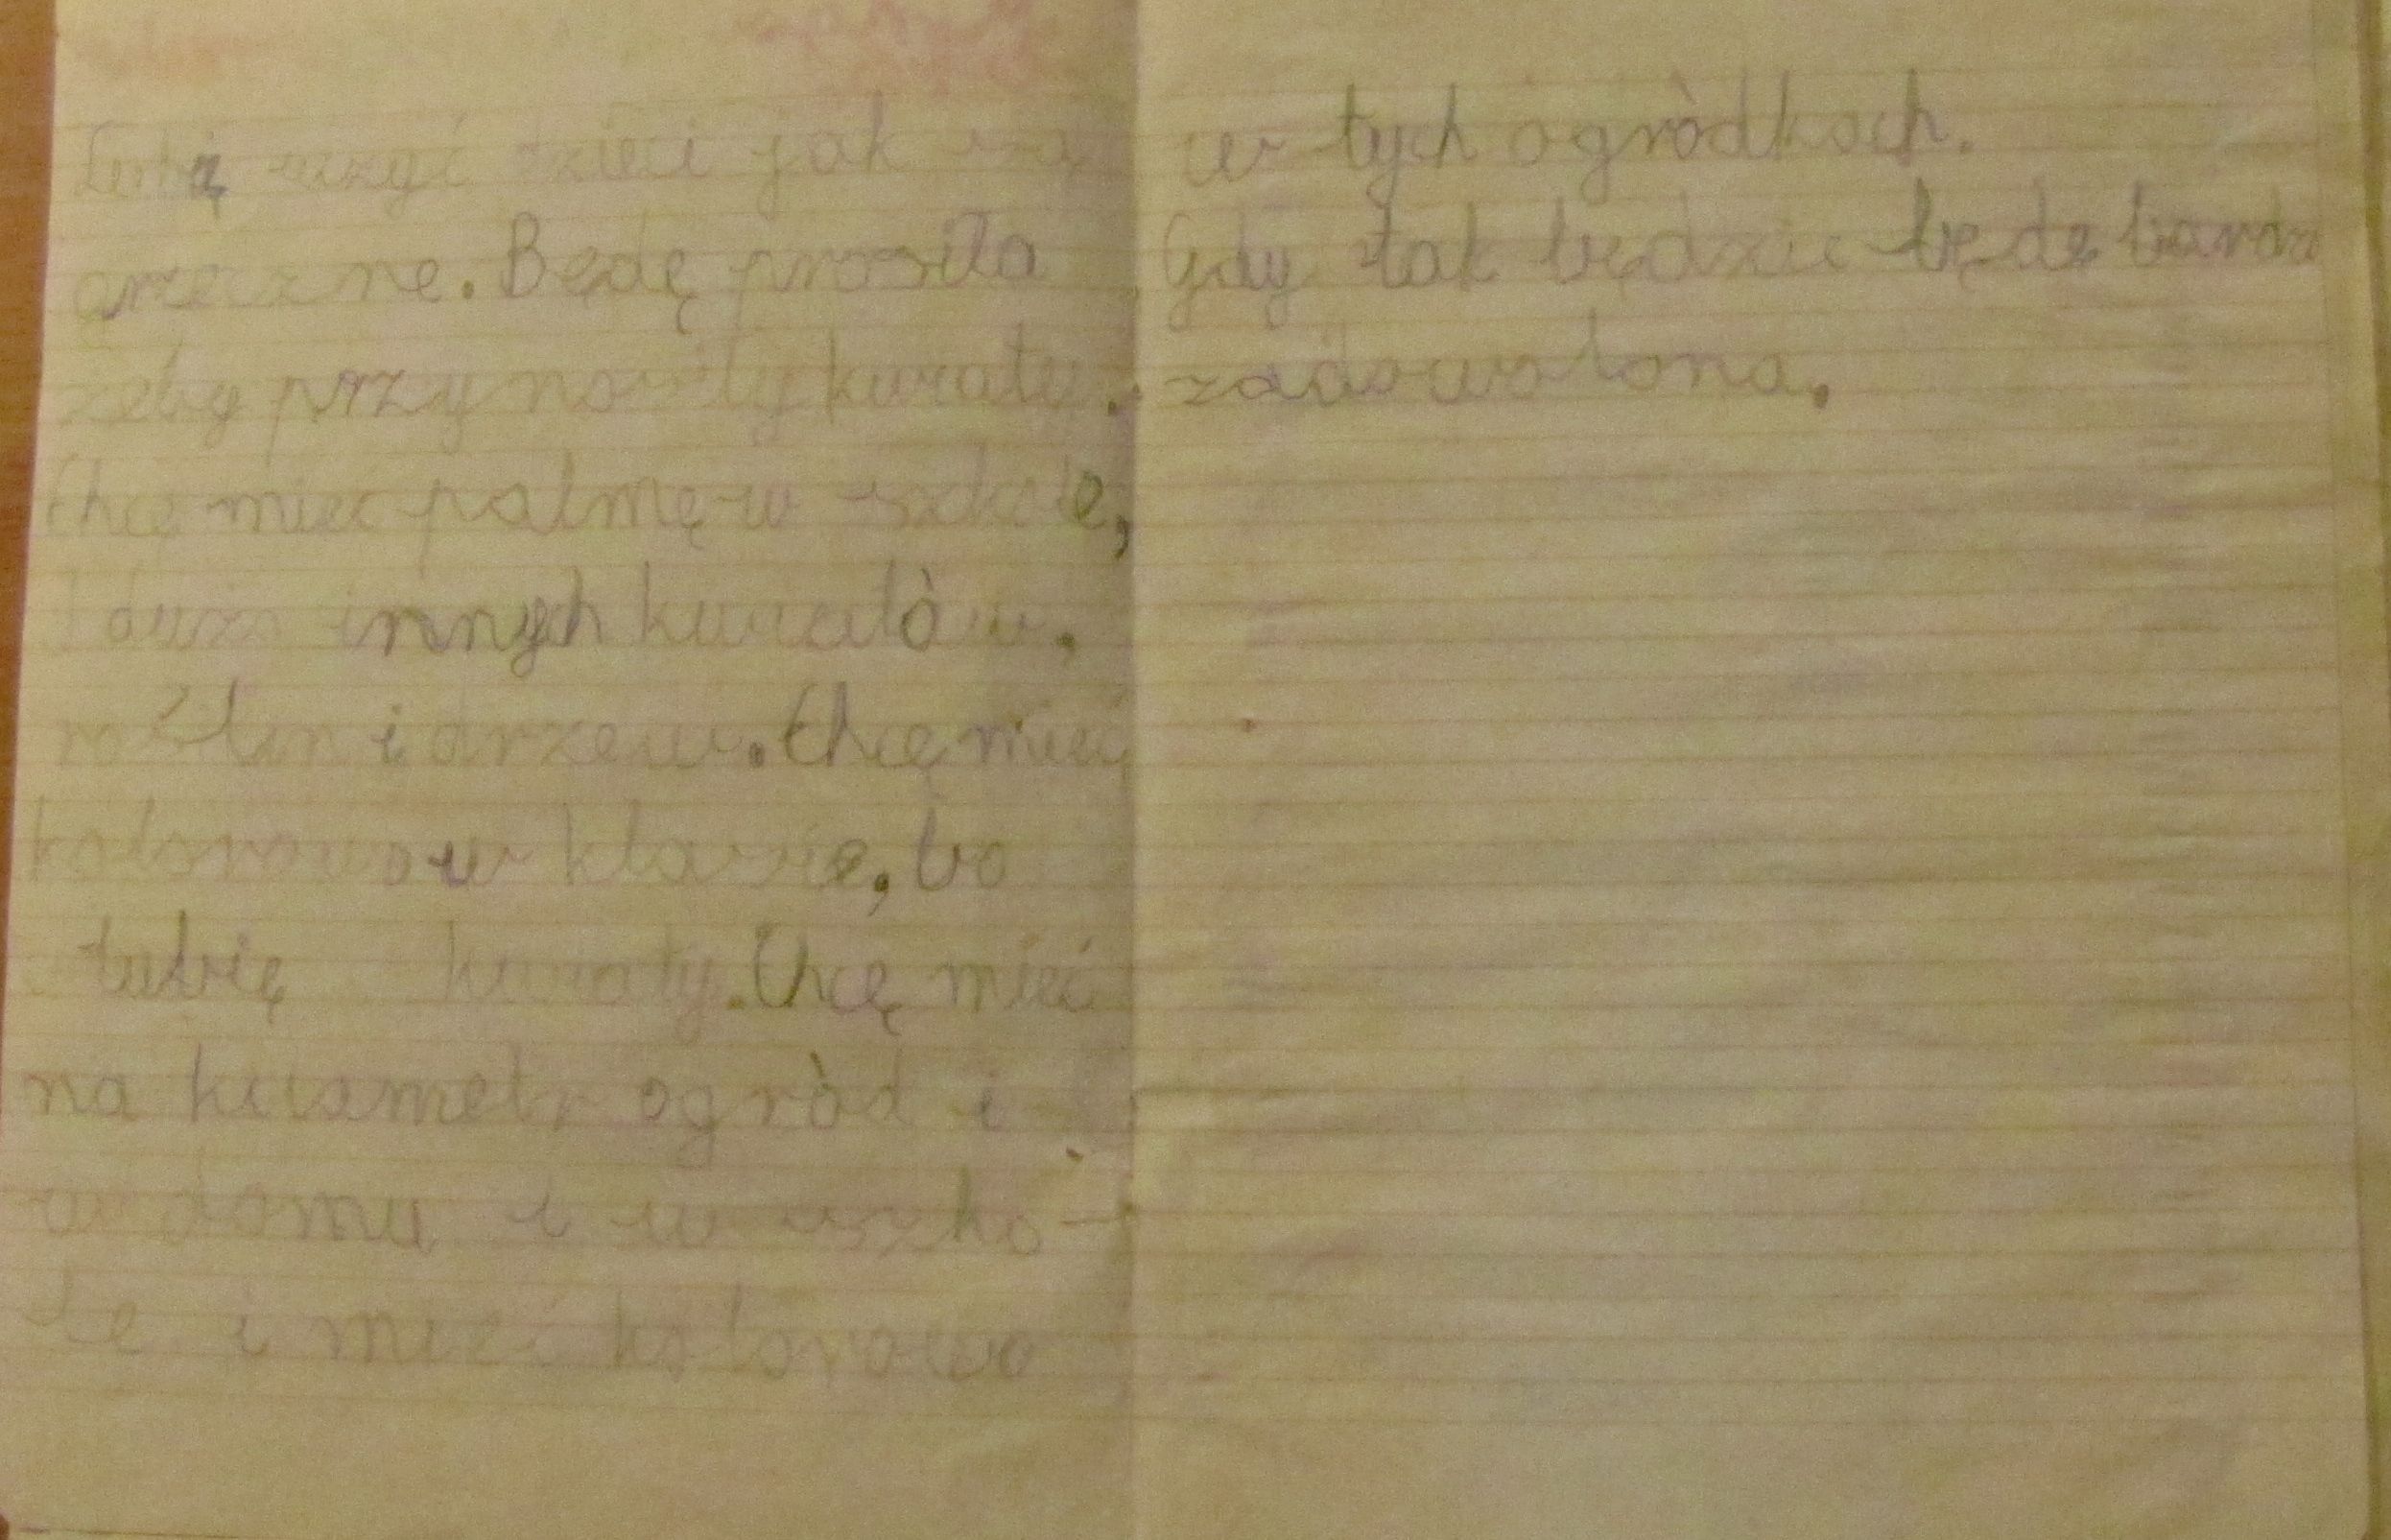 Lubię uczyć dzieci jak są
grzeczne. Będę prosiła
żeby przynosiły kwiaty.
Chcę miec palmę w szkole,
I dużo innych kwiatów,
roślin i drzew. Chcę mieć
kolorowo w klasie, bo
lubię kwiaty. Chcę mieć
na kilometr ogród i
w domu i w szko-
le i mieć kolorowo
w tych ogródkach.
Gdy tak będzie będę bardzo
zadowolona.